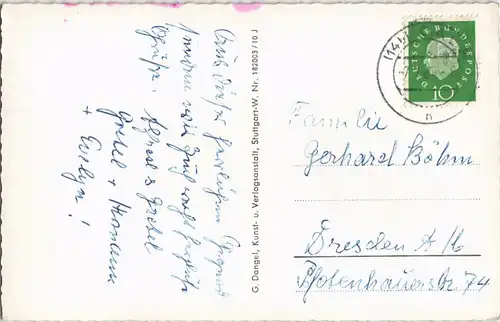 Aus dieser herrlichen Gegend
senden wir Euch recht herzliche
Grüße. Alfred & Gretel
Gretel + Hermann
+ Evelyn!
G. Dangel, Kunst- u. Verlagsanstalt, Stuttgart-W. Nr. 182003/10 J
DEUTSCHE BUNDESPOST
10
(14
Familie
Gerhard Böhm
Dresden A 16
Pfotenhauerstr. 74